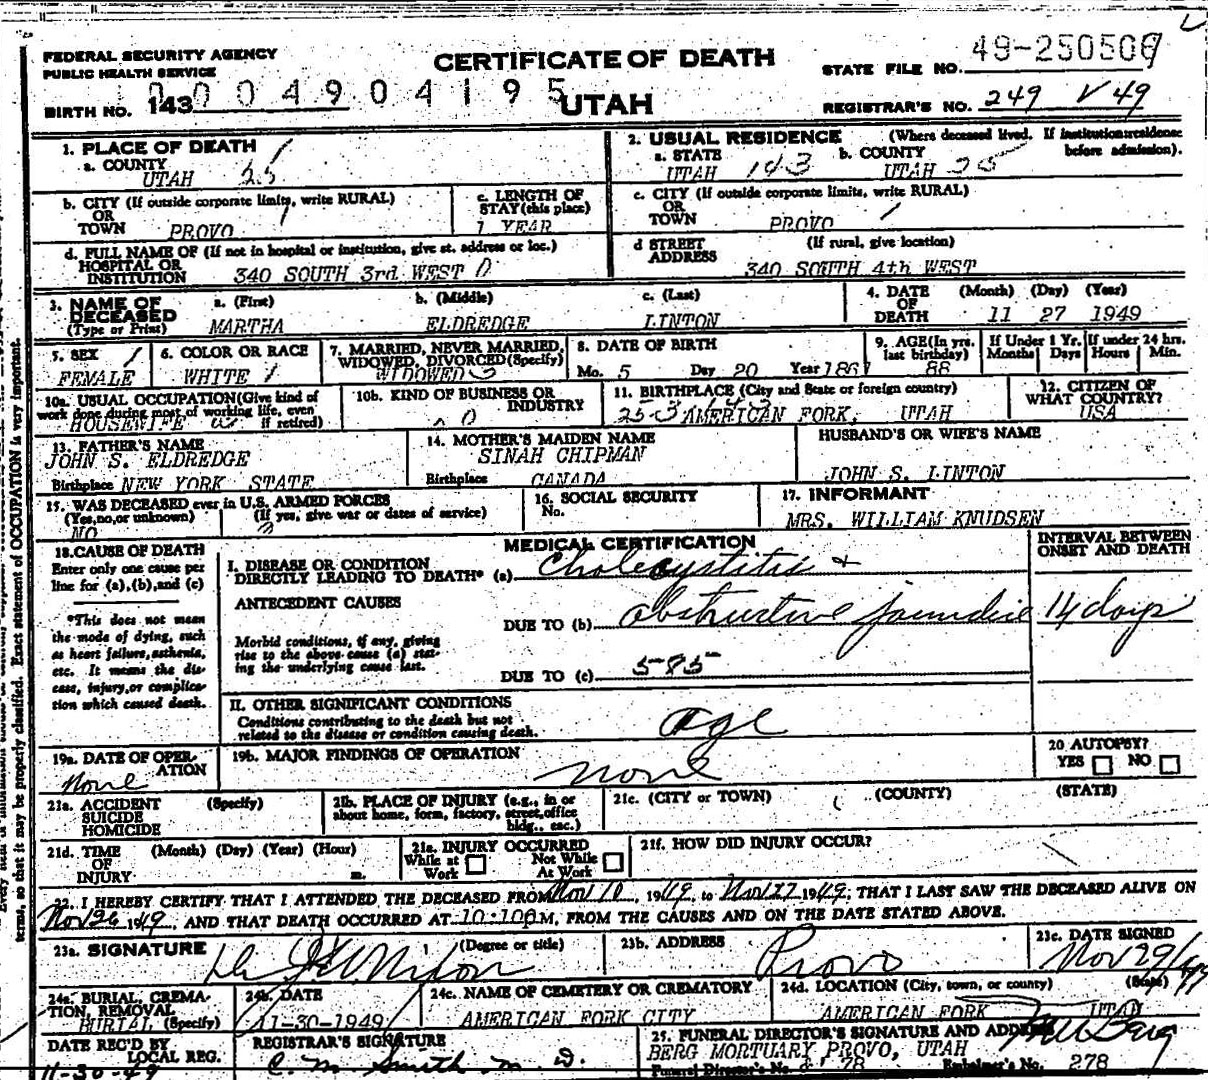 FEDERAL SECURITY AGENCY
PUBLIC HEALTH SERVICE
CERTIFICATE OF DEATH
UTAH
STATE FILE NO. 49-250506
BIRTH NO. 143
0004904195
REGISTRAR'S NO. 249 V 49
1. PLACE OF DEATH
a. COUNTY
UTAH 25
2. USUAL RESIDENCE (Where deceased lived. If institution:residence before admission).
a. STATE b. COUNTY
UTAH 143 UTAH 25
b. CITY (If outside corporate limits, write RURAL)
OR
TOWN PROVO
c. LENGTH OF
STAY (this place)
1 YEAR
c. CITY (If outside corporate limits, write RURAL)
OR
TOWN PROVO
d. FULL NAME OF (If not in hospital or institution, give st. address or loc.)
HOSPITAL OR
INSTITUTION 340 SOUTH 3rd WEST
d STREET (If rural, give location)
ADDRESS
340 SOUTH 4th WEST
3. NAME OF a. (First) b. (Middle) c. (Last)
DECEASED
(Type or Print) MARTHA ELDREDGE LINTON
4. DATE (Month) (Day) (Year)
OF
DEATH 11 27 1949
5. SEX
FEMALE
6. COLOR OR RACE
WHITE
7. MARRIED, NEVER MARRIED,
WIDOWED, DIVORCED (Specify)
WIDOWED
8. DATE OF BIRTH
Mo. 5 Day 20 Year 186
9. AGE (In yrs.
last birthday)
88
If Under 1 Yr.
Months Days
If under 24 hrs.
Hours Min.
10a. USUAL OCCUPATION (Give kind of
work done during most of working life, even
if retired)
HOUSEWIFE
10b. KIND OF BUSINESS OR
INDUSTRY
11. BIRTHPLACE (City and State or foreign country)
AMERICAN FORK, UTAH
12. CITIZEN OF
WHAT COUNTRY?
USA
13. FATHER'S NAME
JOHN S. ELDREDGE
Birthplace NEW YORK STATE
14. MOTHER'S MAIDEN NAME
SINAH CHIPMAN
Birthplace CANADA
HUSBAND'S OR WIFE'S NAME
JOHN S. LINTON
15. WAS DECEASED ever in U.S. ARMED FORCES
(Yes, no, or unknown) (If yes, give war or dates of service)
NO
16. SOCIAL SECURITY
No.
17. INFORMANT
MRS. WILLIAM KNUDSEN
18. CAUSE OF DEATH
Enter only one cause per
line for (a), (b), and (c)
*This does not mean
the mode of dying, such
as heart failure, asthenia,
etc. It means the dis-
ease, injury, or complica-
tion which caused death.
MEDICAL CERTIFICATION
INTERVAL BETWEEN
ONSET AND DEATH
I. DISEASE OR CONDITION
DIRECTLY LEADING TO DEATH* (a) Cholecystitis &
ANTECEDENT CAUSES
DUE TO (b) obstructive jaundice 14 days
Morbid conditions, if any, giving
rise to the above cause (a) stat-
ing the underlying cause last.
DUE TO (c) 585
II. OTHER SIGNIFICANT CONDITIONS
Conditions contributing to the death but not
related to the disease or condition causing death.
age
19a. DATE OF OPER-
ATION
None
19b. MAJOR FINDINGS OF OPERATION
none
20 AUTOPSY?
YES NO
21a. ACCIDENT (Specify)
SUICIDE
HOMICIDE
21b. PLACE OF INJURY (e.g., in or
about home, form, factory, street, office
bldg., etc.)
21c. (CITY or TOWN) (COUNTY) (STATE)
21d. TIME (Month) (Day) (Year) (Hour)
OF
INJURY m.
21e. INJURY OCCURRED
While at Work Not While At Work
21f. HOW DID INJURY OCCUR?
22. I HEREBY CERTIFY THAT I ATTENDED THE DECEASED FROM Nov 10, 1949, to Nov 27 1949, THAT I LAST SAW THE DECEASED ALIVE ON
Nov 26 1949, AND THAT DEATH OCCURRED AT 10:10 PM, FROM THE CAUSES AND ON THE DATE STATED ABOVE.
23a. SIGNATURE (Degree or title)
Nixon
23b. ADDRESS
Provo
23c. DATE SIGNED
Nov 29/49
24a. BURIAL, CREMA-
TION, REMOVAL
BURIAL (Specify)
24b. DATE
11-30-1949
24c. NAME OF CEMETERY OR CREMATORY
AMERICAN FORK CITY
24d. LOCATION (City, town, or county) (State)
AMERICAN FORK UTAH
DATE REC'D BY
LOCAL REG.
11-30-49
REGISTRAR'S SIGNATURE
C. M. Smith M. D.
25. FUNERAL DIRECTOR'S SIGNATURE AND ADDRESS
BERG MORTUARY PROVO, UTAH
Funeral Director's No. 78 Embalmer's No. 278
terms, so that it may be properly classified. Exact statement of OCCUPATION is very important.